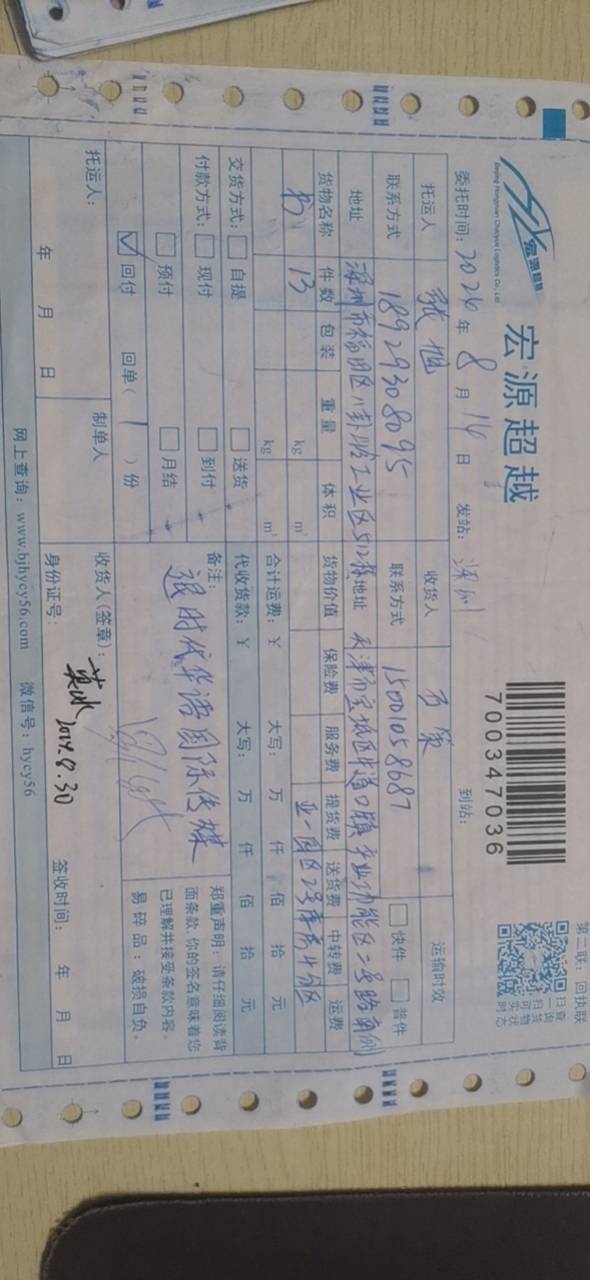 宏源超越
宏源超越
Beijing Hongyuan Chaoyue Logistics Co., Ltd.
7 0 0 3 4 7 0 3 6
第二联：回执联
扫一扫可实时
查询货物状态
委托时间：2024 年 8 月 14 日 发站：深圳 到站：
托运人 张旭 收货人 运输时效
联系方式 18929308095 联系方式 15001058687 快件 普件
地址 深圳市福田区八卦岭工业区512栋 地址 天津市宝坻区中道口镇产业功能区二号路南侧
货物名称 件数 包装 重量 体积 货物价值 保险费 服务费 提货费 送货费 中转费 运费
书 13 kg m³ 业一园区2号库房4分区
kg m³ 合计运费：¥ 大写： 万 仟 佰 拾 元
交货方式： 自提 送货 代收货款：¥ 大写： 万 仟 佰 拾 元
付款方式： 现付 到付 备注：
预付 月结 退时代华语国际传媒
回付 回单（ 1 ）份
郑重声明：请仔细阅读背
面条款，你的签名意味着您
已理解并接受条款内容。
易碎品：破损自负。
托运人： 制单人 收货人(签章)：
年 月 日 身份证号： 8.30 签收时间： 年 月 日
网上查询：www.bjhycy56.com 微信号：hycy56